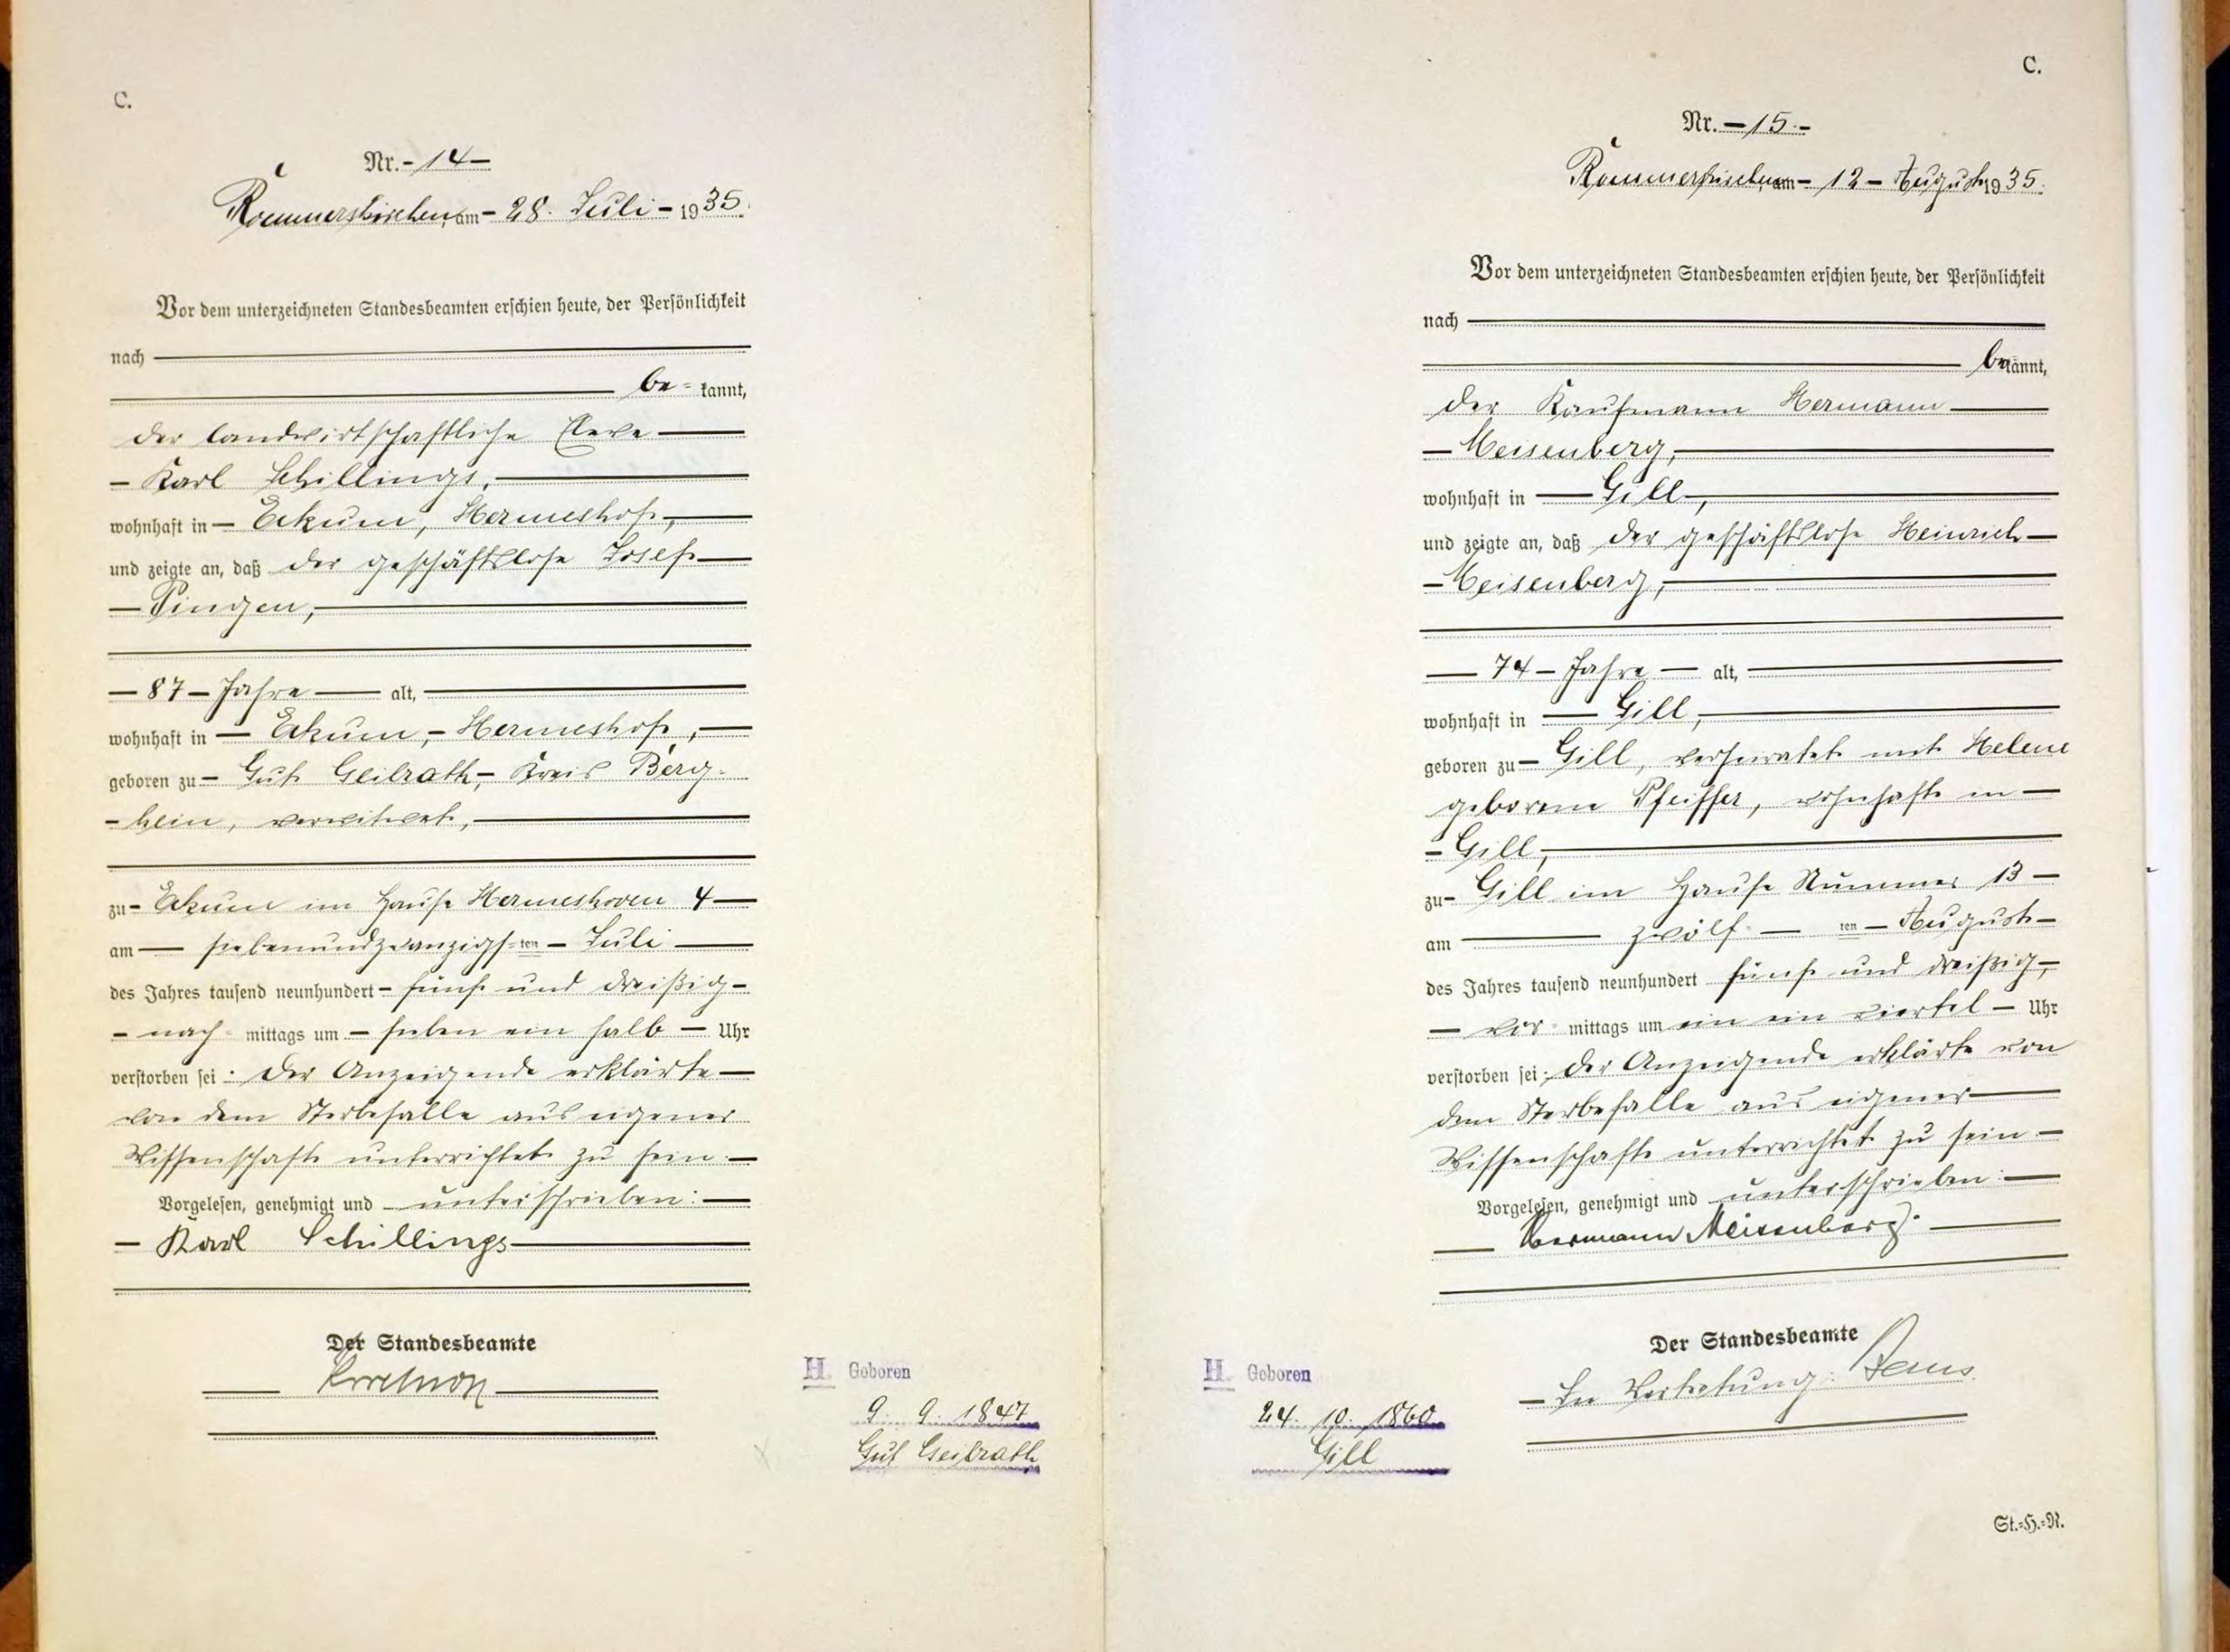 C.
Nr. - 14 -
Rommerskirchen, am - 28. Juli - 1935.
Vor dem unterzeichneten Standesbeamten erschien heute, der Persönlichkeit
nach
be= kannt,
der landwirtschaftliche Eleve
- Karl Schillings,
wohnhaft in - Eckum, Hermeshof,
und zeigte an, daß der geschäftslose Josef
- Pingen,
- 87 - Jahre - alt,
wohnhaft in - Eckum, - Hermeshof,
geboren zu - Gut Geilrath, - Kreis Berg-
- heim, verwitwet,
zu - Eckum im Hause Hermeshoven 4 -
am - siebenundzwanzigs=ten - Juli
des Jahres tausend neunhundert - fünf und dreißig -
- nach= mittags um - sieben ein halb - Uhr
verstorben sei: Der Anzeigende erklärte -
von dem Sterbefalle aus eigener
Wissenschaft unterrichtet zu sein. -
Vorgelesen, genehmigt und unterschrieben: -
- Karl Schillings
Der Standesbeamte
H. Geboren
9. 9. 1847
Gut Geilrath
C.
Nr. - 15. -
Rommerskirchen, am - 12 - August 1935.
Vor dem unterzeichneten Standesbeamten erschien heute, der Persönlichkeit
nach
bekannt,
der Kaufmann Hermann
- Meisenberg,
wohnhaft in - Gill,
und zeigte an, daß der geschäftslose Heinrich -
- Meisenberg,
- 74 - Jahre - alt,
wohnhaft in - Gill,
geboren zu - Gill, verheiratet mit Helene
geborene Pfeiffer, wohnhaft in -
- Gill,
zu - Gill im Hause Nummer 13 -
am - zwölf - ten - August -
des Jahres tausend neunhundert fünf und dreißig, -
- vor= mittags um ein ein viertel - Uhr
verstorben sei: Der Anzeigende erklärte von
dem Sterbefalle aus eigener
Wissenschaft unterrichtet zu sein -
Vorgelesen, genehmigt und unterschrieben: -
Hermann Meisenberg.
Der Standesbeamte
- In Vertretung:
H. Geboren
24. 10. 1860
Gill
St.=H.=R.